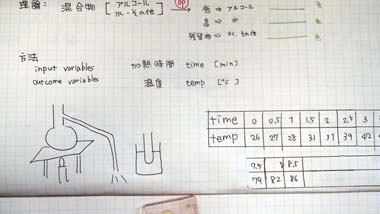 理論: 混合物 [アルコール 水・その他] bp 低 ⇒ アルコール 色
高 ⇒ 水 色
残留物 ⇒ 水、その他 色
方法
input variables 加熱時間 time [min]
outcome variables 温度 temp [℃]
time 0 0.5 1 1.5 2 2.5 3
temp 26 27 28 31 31 39
7.5 8.5
79 82 86